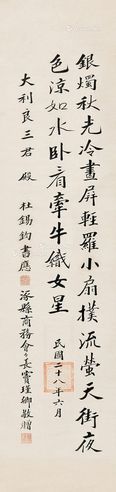 銀燭秋光冷畫屏輕羅小扇撲流螢天街夜
色涼如水卧看牽牛織女星
民國二十八年六月
大利良三君殿
杜錫鈞書應
涿縣商務會會長竇瑾卿敬贈